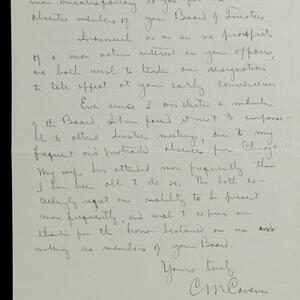 more unsatisfactory to you for
absentee members of your Board of Trustees
Inasmuch as we see no prospects
of a more active interest in your affairs,
we both wish to tender our resignations
to take effect at your early convenience.
Ever since I was elected a member
of the Board, I have found it next to impossi-
ble to attend trustees meetings, due to my
frequent and protracted absences from Chicago.
My wife has attended more frequently than
I have been able to do so. We both ex-
ceedingly regret our inability to be present
more frequently, and wish to express our
thanks for the honor bestowed on us in
making us members of your Board.
Yours truly